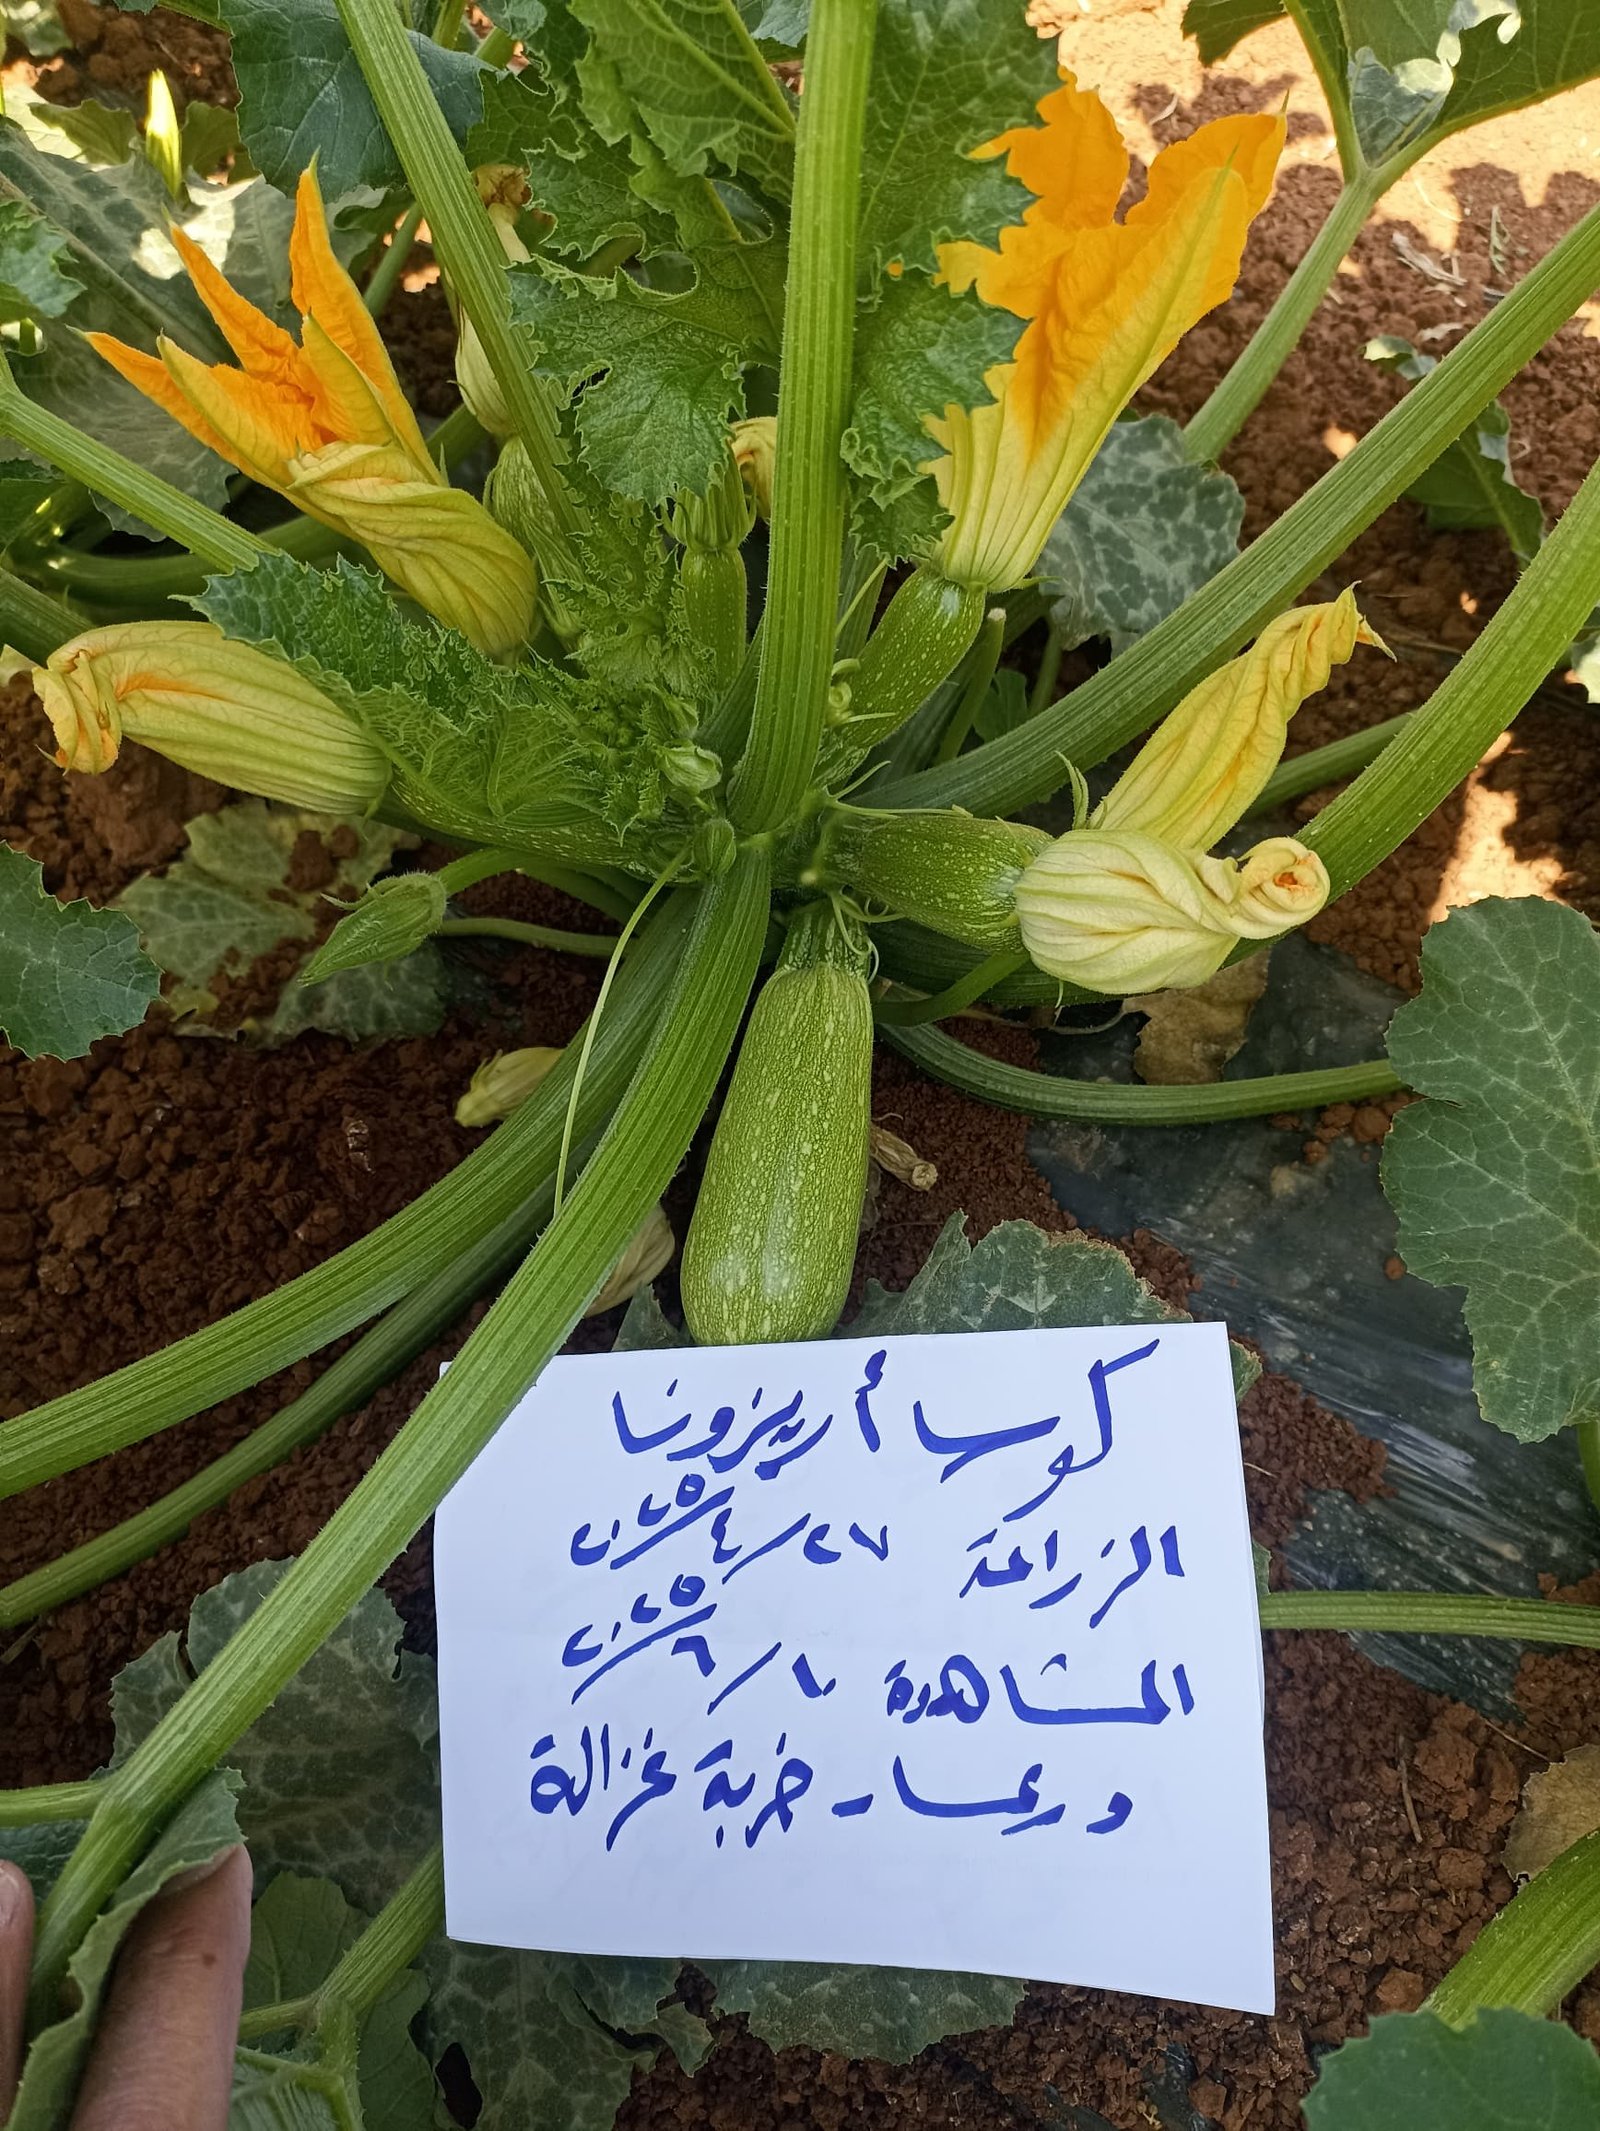 كوسا أريزونا
الزراعة ٢٧/٤/٢٠٢٥
المشاهدة ١٠/٦/٢٠٢٥
دير عمار - خربة غزالة